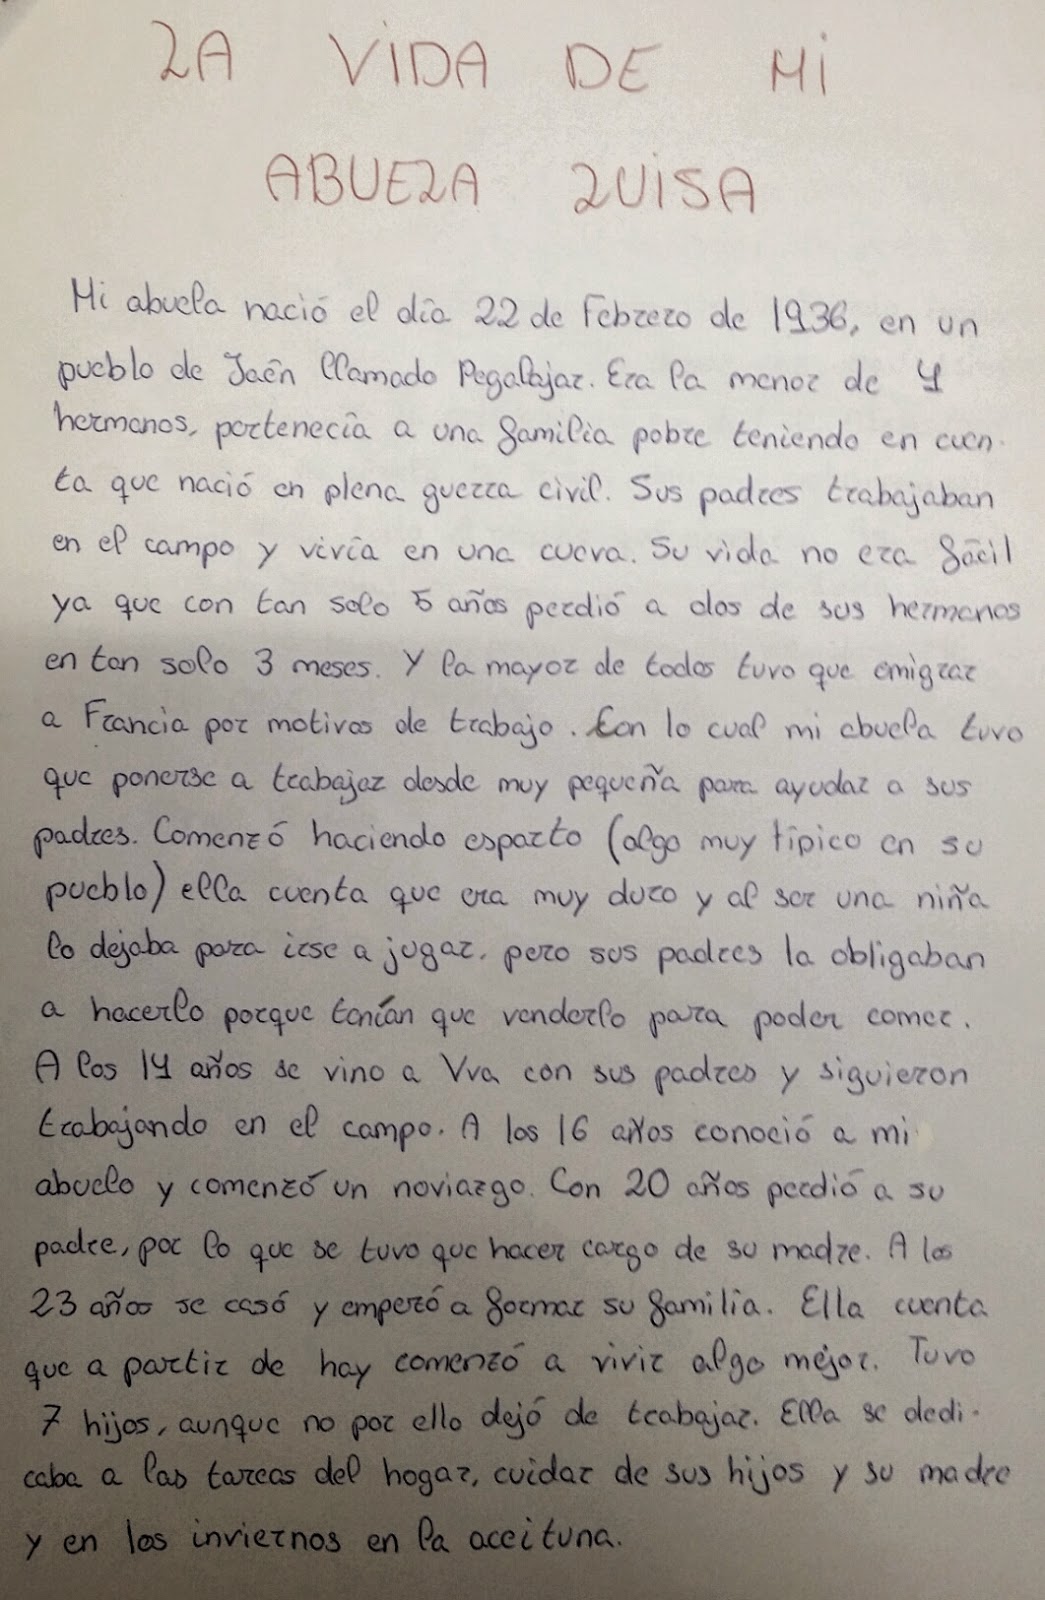 LA VIDA DE MI
ABUELA LUISA
Mi abuela nació el día 22 de Febrero de 1936, en un
pueblo de Jaén llamado Pegalajar. Era la menor de 4
hermanos, pertenecía a una familia pobre teniendo en cuen-
ta que nació en plena guerra civil. Sus padres trabajaban
en el campo y vivía en una cueva. Su vida no era fácil
ya que con tan solo 5 años perdió a dos de sus hermanos
en tan solo 3 meses. Y la mayor de todos tuvo que emigrar
a Francia por motivos de trabajo. Con lo cual mi abuela tuvo
que ponerse a trabajar desde muy pequeña para ayudar a sus
padres. Comenzó haciendo esparto (algo muy típico en su
pueblo) ella cuenta que era muy duro y al ser una niña
lo dejaba para irse a jugar, pero sus padres la obligaban
a hacerlo porque tenían que venderlo para poder comer.
A los 14 años se vino a Vva con sus padres y siguieron
trabajando en el campo. A los 16 años conoció a mi
abuelo y comenzó un noviazgo. Con 20 años perdió a su
padre, por lo que se tuvo que hacer cargo de su madre. A los
23 años se casó y empezó a formar su familia. Ella cuenta
que a partir de hay comenzó a vivir algo mejor. Tuvo
7 hijos, aunque no por ello dejó de trabajar. Ella se dedi-
caba a las tareas del hogar, cuidar de sus hijos y su madre
y en los inviernos en la acceituna.